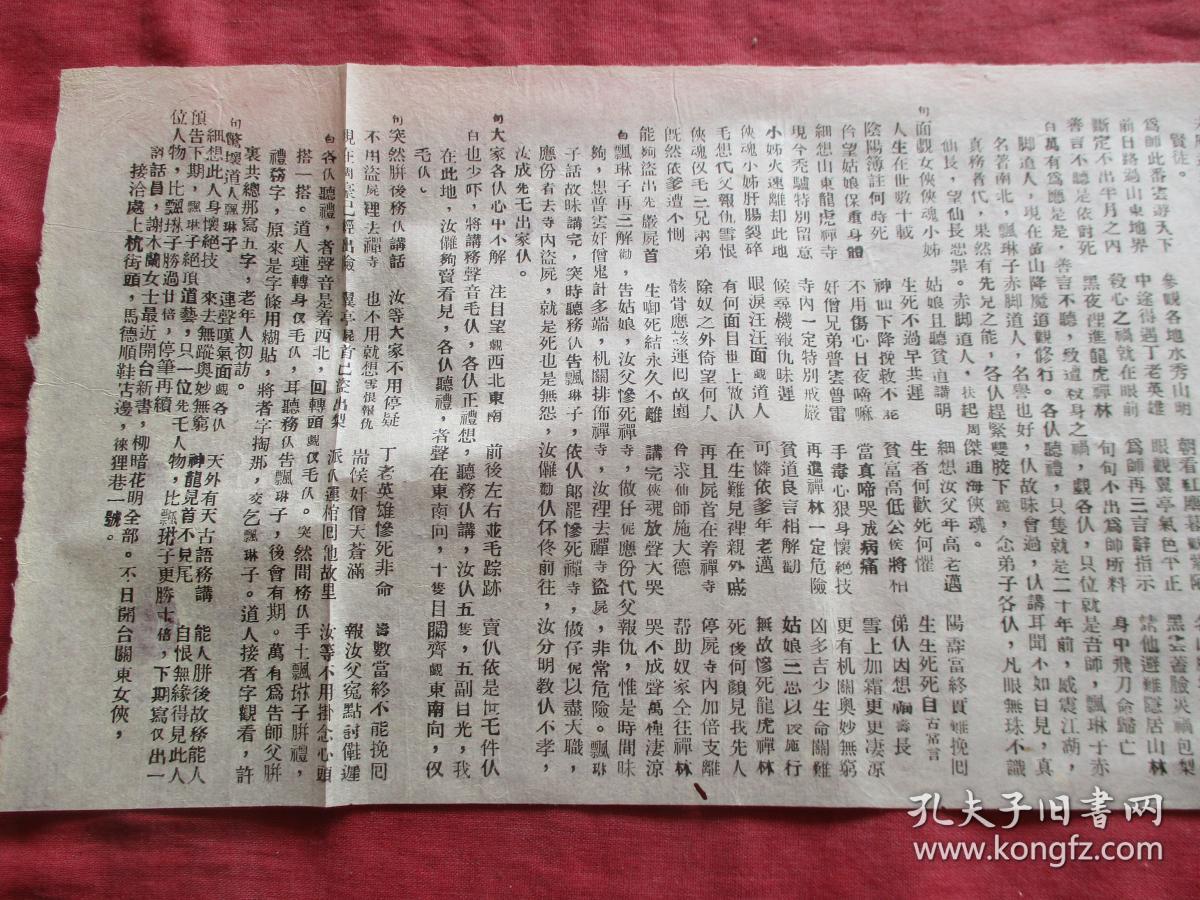 賢徒。
爲師此番雲遊天下 參觀各地水秀山明 朝看紅塵暮觀
前日路過山東地界 中途得遇丁老英雄 眼觀翼亭氣色不正 黑雲蓋臉災禍包
斷定不出半月之內 殺心之禍就在眼前 爲師再三言辭指示 他避難隱居山林
善言不聽是依對死 黑夜裡進龍虎禪林 句句不出爲師所料 身中飛刀命歸亡
白萬有爲應是是,善言不聽,致遭殺身之禍,觀各仈,只位就是吾師,飄琳子赤
脚道人,現在黃山降魔道觀修行。各仈聽禮,只隻就是二十年前,威震江湖,
名著南北,飄琳子赤脚道人,名譽也好,仈故昧會過,仈講耳聞不如日見,真
真務者代,果然有先兄之能,各仈趕緊雙膝下跪,念弟子各仈,凡眼無珠不識
仙長,望仙長恕罪。赤脚道人,扶起周傑通海俠魂。
旬面觀女俠俠魂小姊 姑娘且聽貧道講明 細想汝父年高老邁 陽壽當終實難挽回
人生在世數十載 生死不過早共遲 生者何歡死何懼 生生死死自古常言
陰陽簿註何時死 神仙下降挽救不能 貧富高低公侯將相 俤仈因想禍壽長
伱望姑娘保重身體 不用傷心日夜啼嘛 當真啼哭成病痛 雪上加霜更更凄凉
細想山東龍虎禪寺 奸僧兄弟普雲普雷 手毒心狠身懷絶技 更有机關奥妙無窮
現今禿驢特別留意 寺內一定特別戒嚴 再進禪林一定危險 凶多吉少生命關難
小姊火速離却此地 候尋機報仇昧遲 貧道良言相解勸 姑娘三思以後施行
俠魂小姊肝腸裂碎 眼淚汪汪面觀道人 可憐依爹年老邁 無故慘死龍虎禪林
毛想代父報仇雪恨 有何面目世上做仈 在生難見裡親外戚 死後何顏見我先人
俠魂仅毛三兄兩弟 除奴之外倚望何人 再且屍首在着禪寺 停屍寺內加倍支離
既然依爹遭不惻 骸骨應該運回故園 伱求仙師施大德 帮助奴家仝往禪林
能夠盜出先嚴屍首 生啣死結永久不離 講完俠魂放聲大哭 哭不成聲萬種凄涼
白飄琳子再三解勸,告姑娘,汝父慘死禪寺,做仔伲應份代父報仇,惟是時間昧
夠,想普雲奸僧鬼計多端,机關排佈禪寺,汝裡去禪寺盜屍,非常危險。飄琳
子話故昧講完,突時聽務仈告飄琳子,依仈郎罷慘死禪寺,做仔伲以盡天職,
應份着去寺內盜屍,就是死也是無怨,汝儺勸仈怀佟前往,汝分明教仈不孝,
汝成先毛出家仈。
旬大家各仈心中不解 注目望觀西北東南 前後左右並毛踪跡 賣仈依是世毛件仈
白也少吓,將講務聲音毛仈,各仈正禮想,聽務仈講,汝仈五隻,五副目光,我
在此地,汝儺夠賣看見,各仈聽禮,者聲在東南向,十隻目關齊觀東南向,仅
毛仈。
旬突然胼後務仈講話 汝等大家不用停疑 丁老英雄慘死非命 壽數當終不能挽回
不用盜屍裡去禪寺 也不用就想雪恨報仇 耑候奸僧天蒼滿 報汝父寃點討催遲
現在周 已經出險 翼亭屍首已盜出梨 派仈運棺回他故里 汝等不用掛念心頭
白各仈聽禮,者聲音是着西北,回轉頭觀仅毛仈。突然間務仈手土飄琳子胼禮,
搭一搭。道人璉轉身仅毛仈,耳聽務仈告飄琳子,後會有期。萬有爲告師父胼
禮務字,原來是字條用糊貼,將者字掏那,交乞飄琳子。道人接者字觀看,許
裏共總那寫五字,老年人初訪。
旬驚壞道人飄琳子 連聲嘆氣面觀各仈 天外有天古語務講 能人胼後故務能人
細想此人身懷絕技 來去無蹤奥妙無窮 神龍見首不見尾 自恨無緣得見此人
預告下期,飄琳子絕頂道藝,只一位先毛人物,比飄琳子更勝十倍,下期寫仅出一
位人物,比飄琳子勝過廿倍,停筆再續
說話員,謝木蘭女士最近開台新書,柳暗花明全部。不日開台關東女俠,
接洽處上杭街頭,馬德順鞋店邊,徠狸巷一號。
孔夫子旧书网
www.kongfz.com